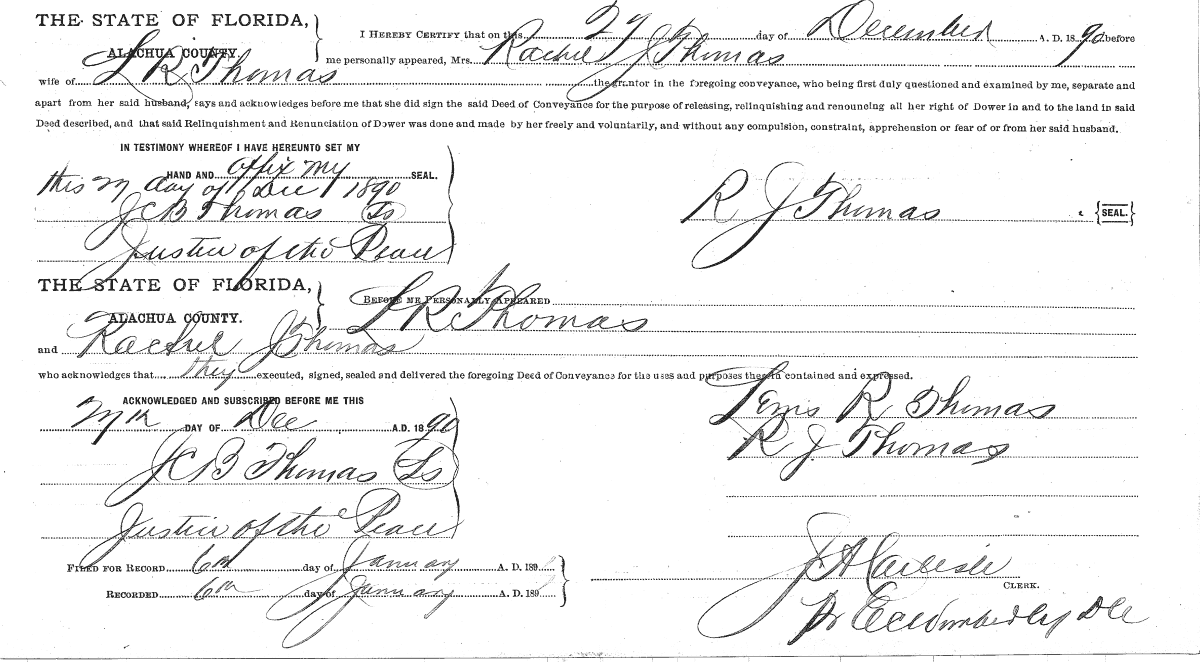 THE STATE OF FLORIDA,
ALACHUA COUNTY.
I HEREBY CERTIFY that on this 27 day of December A. D. 1890. before
me personally appeared, Mrs. Rachel J Thomas
wife of L R Thomas the grantor in the foregoing conveyance, who being first duly questioned and examined by me, separate and
apart from her said husband, says and acknowledges before me that she did sign the said Deed of Conveyance for the purpose of releasing, relinquishing and renouncing all her right of Dower in and to the land in said
Deed described, and that said Relinquishment and Renunciation of Dower was done and made by her freely and voluntarily, and without any compulsion, constraint, apprehension or fear of or from her said husband.
IN TESTIMONY WHEREOF I HAVE HEREUNTO SET MY
HAND AND affix my SEAL.
this day of Dec 1890
JCB Thomas Ls
Justice of the Peace
R J Thomas {SEAL.}
THE STATE OF FLORIDA,
ALACHUA COUNTY.
BEFORE ME PERSONALLY APPEARED
L R Thomas
and Rachel J Thomas
who acknowledges that they executed, signed, sealed and delivered the foregoing Deed of Conveyance for the uses and purposes therein contained and expressed.
ACKNOWLEDGED AND SUBSCRIBED BEFORE ME THIS
DAY OF Dec A.D. 1890
JCB Thomas Ls
Justice of the Peace
R Thomas
R J Thomas
FILED FOR RECORD 6th day of January A. D. 189
RECORDED 6th day of January A. D. 189
J A Carlisle
CLERK.
Wimberly DC